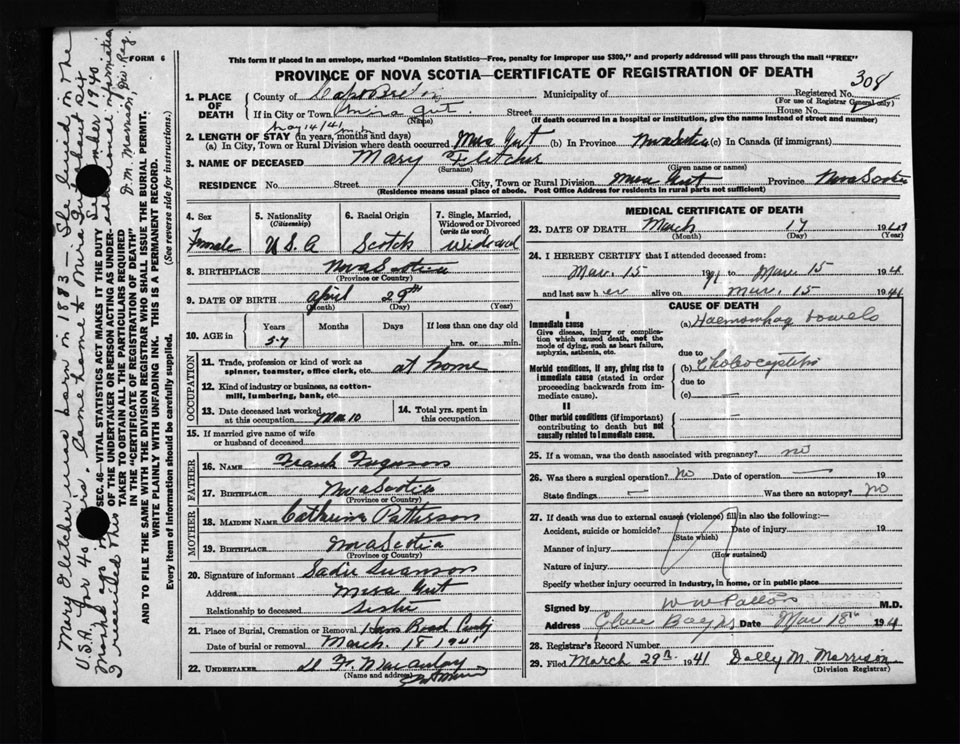 This form if placed in an envelope, marked "Dominion Statistics—Free, penalty for improper use $300," and properly addressed will pass through the mail "FREE"
FORM 6
PROVINCE OF NOVA SCOTIA—CERTIFICATE OF REGISTRATION OF DEATH
308
1. PLACE OF DEATH
County of Cape Breton Municipality of Registered No.
(For use of Registrar General only)
If in City or Town Mira Gut Street House No.
(Name) (If death occurred in a hospital or institution, give the name instead of street and number)
2. LENGTH OF STAY (in years, months and days)
(a) In City, Town or Rural Division where death occurred Mira Gut (b) In Province Nova Scotia (c) In Canada (if immigrant)
3. NAME OF DECEASED Mary Fletcher
(Surname) (Given name or names)
RESIDENCE No. Street City, Town or Rural Division Mira Gut Province Nova Scotia
(Residence means usual place of abode. Post Office Address for residents in rural parts not sufficient)
4. Sex 5. Nationality (Citizenship) 6. Racial Origin 7. Single, Married, Widowed or Divorced (write the word)
Female U S A Scotch Widowed
8. BIRTHPLACE Nova Scotia
(Province or Country)
9. DATE OF BIRTH April 29th
(Month) (Day) (Year)
10. AGE in Years Months Days If less than one day old
57 hrs. or min.
OCCUPATION
11. Trade, profession or kind of work as spinner, teamster, office clerk, etc. at home
12. Kind of industry or business, as cotton-mill, lumbering, bank, etc.
13. Date deceased last worked at this occupation Mar 10
14. Total yrs. spent in this occupation
15. If married give name of wife or husband of deceased
FATHER
16. NAME Frank Ferguson
17. BIRTHPLACE Nova Scotia
(Province or Country)
MOTHER
18. MAIDEN NAME Catherine Patterson
19. BIRTHPLACE Nova Scotia
(Province or Country)
20. Signature of informant Sadie Swanson
Address Mira Gut
Relationship to deceased Sister
21. Place of Burial, Cremation or Removal Road
Date of burial or removal March 18 1941
22. UNDERTAKER
(Name and address)
MEDICAL CERTIFICATE OF DEATH
23. DATE OF DEATH March 17 1941
(Month) (Day) (Year)
24. I HEREBY CERTIFY that I attended deceased from:
Mar. 15 1941 to Mar. 15 194
and last saw her alive on Mar. 15 1941
CAUSE OF DEATH
I
Immediate cause
Give disease, injury or complication which caused death, not the mode of dying, such as heart failure, asphyxia, asthenia, etc.
(a) Haemorrhag bowels
due to
Morbid conditions, if any, giving rise to immediate cause (stated in order proceeding backwards from immediate cause).
(b)
due to
(c)
II
Other morbid conditions (if important) contributing to death but not causally related to immediate cause.
25. If a woman, was the death associated with pregnancy? no
26. Was there a surgical operation? No Date of operation — 19
State findings — Was there an autopsy? no
27. If death was due to external causes (violence) fill in also the following:—
Accident, suicide or homicide? Date of injury 19
(State which)
Manner of injury
(How sustained)
Nature of injury
Specify whether injury occurred in industry, in home, or in public place
Signed by W W Patton M.D.
Address Glace Bay NS Date Mar 18th 194
28. Registrar's Record Number
29. Filed March 29th 1941 Dolly M. Morrison
(Division Registrar)
Mary Fletcher was born in 1883 — She lived in the
U.S.A. for 40 years. Came home to Mira Gut about six
months ago
I received this additional information
D. M. Morrison, Div. Reg.
SEC. 46—VITAL STATISTICS ACT MAKES IT THE DUTY
OF THE UNDERTAKER OR PERSON ACTING AS UNDER-
TAKER TO OBTAIN ALL THE PARTICULARS REQUIRED
IN THE "CERTIFICATE OF REGISTRATION OF DEATH"
AND TO FILE THE SAME WITH THE DIVISION REGISTRAR WHO SHALL ISSUE THE BURIAL PERMIT.
WRITE PLAINLY WITH UNFADING INK. THIS IS A PERMANENT RECORD.
Every item of information should be carefully supplied. (See reverse side for instructions.)